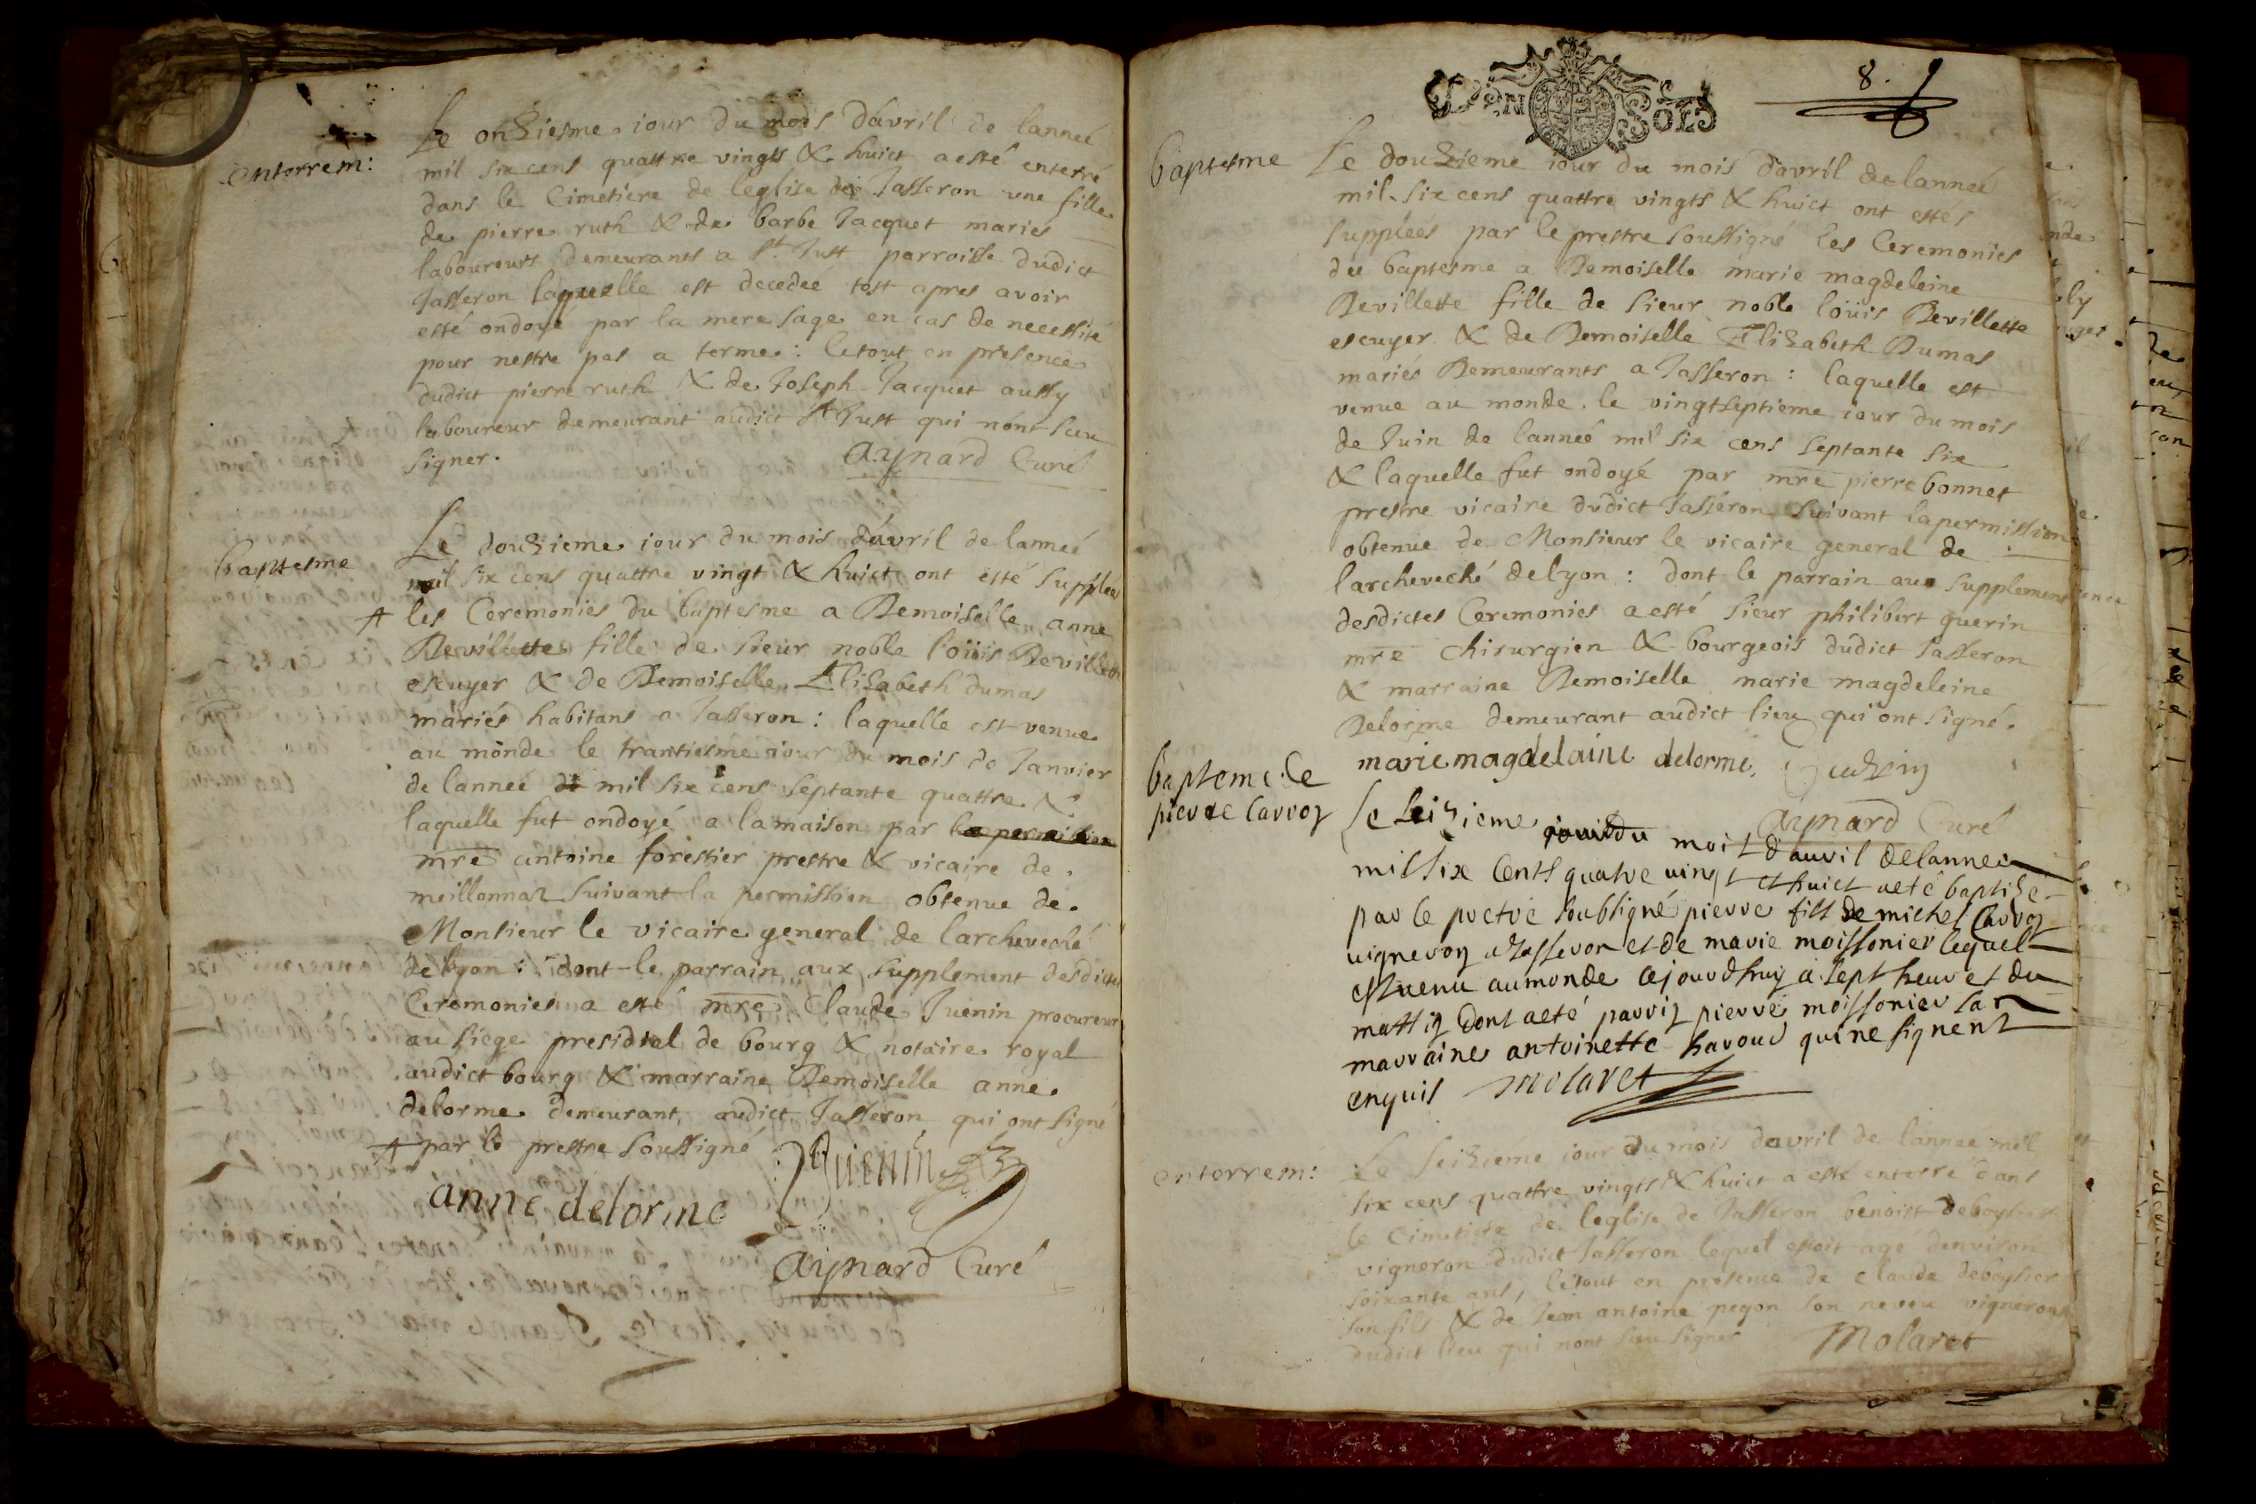 enterrem:
Le onziesme iour du mois davril de lanneé
mil six cens quattre vingts & huict a esté enterré
dans le Cimetiere de leglise de Jasseron une fille
de pierre ruth & de barbe Jacquet mariés
laboureurs demeurants a St Just parroisse dudict
Jasseron laquelle est decedeé tost apres avoir
esté ondoyé par la mere sage en cas de necessité
pour nestre pas a terme : le tout en presence
dudict pierre ruth & de Joseph Jacquet aussy
laboureur demeurant audict St Just qui nont sceu
signer.
aynard Curé
baptesme
Le douzieme iour du mois davril de lanneé
mil six cens quattre vingt & huict ont esté suppleés
les Ceremonies du baptesme a Demoiselle anne
Devillette fille de sieur noble loüis Devillette
escuyer & de Demoiselle Elizabeth dumas
mariés habitans a Jasseron : laquelle est venue
au monde le trantiesme iour du mois de Janvier
de lanneé mil six cens septante quattre &
laquelle fut ondoyé a la maison par la permission
mre antoine forestier prestre & vicaire de
meillonnaz suivant la permission obtenue de
Monsieur le vicaire general de larcheveché
de lyon : dont le parrain aux supplement desdictes
Ceremonies a esté mre Claude Juenin procureur
au siege presidial de bourg & notaire royal
audict bourg & marraine Demoiselle anne
delorme demeurant audict Jasseron qui ont signé
par le prestre soussigné
Juenin
anne delorme
aynard Curé
DEN SOLS
8.
baptesme
Le douzieme iour du mois davril de lanneé
mil six cens quattre vingts & huict ont estés
suppleés par le prestre soussigné les Ceremonies
du baptesme a Demoiselle marie magdeleine
Devillette fille de sieur noble loüis Devillette
escuyer & de Demoiselle Elizabeth Dumas
mariés Demeurants a Jasseron : laquelle est
venue au monde le vingtseptieme iour du mois
de Juin de lanneé mil six cens septante six
& laquelle fut ondoyé par mre pierre bonnet
prestre vicaire dudict Jasseron suivant la permission
obtenue de Monsieur le vicaire general de
larcheveché de lyon : dont le parrain au supplement
desdictes Ceremonies a esté sieur philibert guerin
mre chirurgien & bourgeois dudict Jasseron
& marraine Demoiselle marie magdeleine
Delorme demeurant audict lieu qui ont signé.
marie magdelaine delorme
aynard Curé
bapteme de
pierre Carroz
Le seizieme jour du mois d'auril de lannee
mil six Cents quatre uingt et huict a eté baptizé
par le pretre soubsigné pierre fils de michel Carroz
uigneron a Jasseron et de marie moissonier lequel
est uenu au monde ce jourdhuy a sept heures du
mattin dont a eté parrin pierre moissonier la
marraine antoinette havoud qui ne signent
enquis molaret
enterrem:
Le seizieme iour du mois davril de lanneé mil
six cens quattre vingts & huict a esté enterré dans
le Cimetiere de leglise de Jasseron benoist
vigneron dudict Jasseron lequel estoit agé denviron
soixante ans, le tout en presence de Claude
son fils & de Jean antoine pegon son neveu vignerons
dudict lieu qui nont sceu signer
Molaret